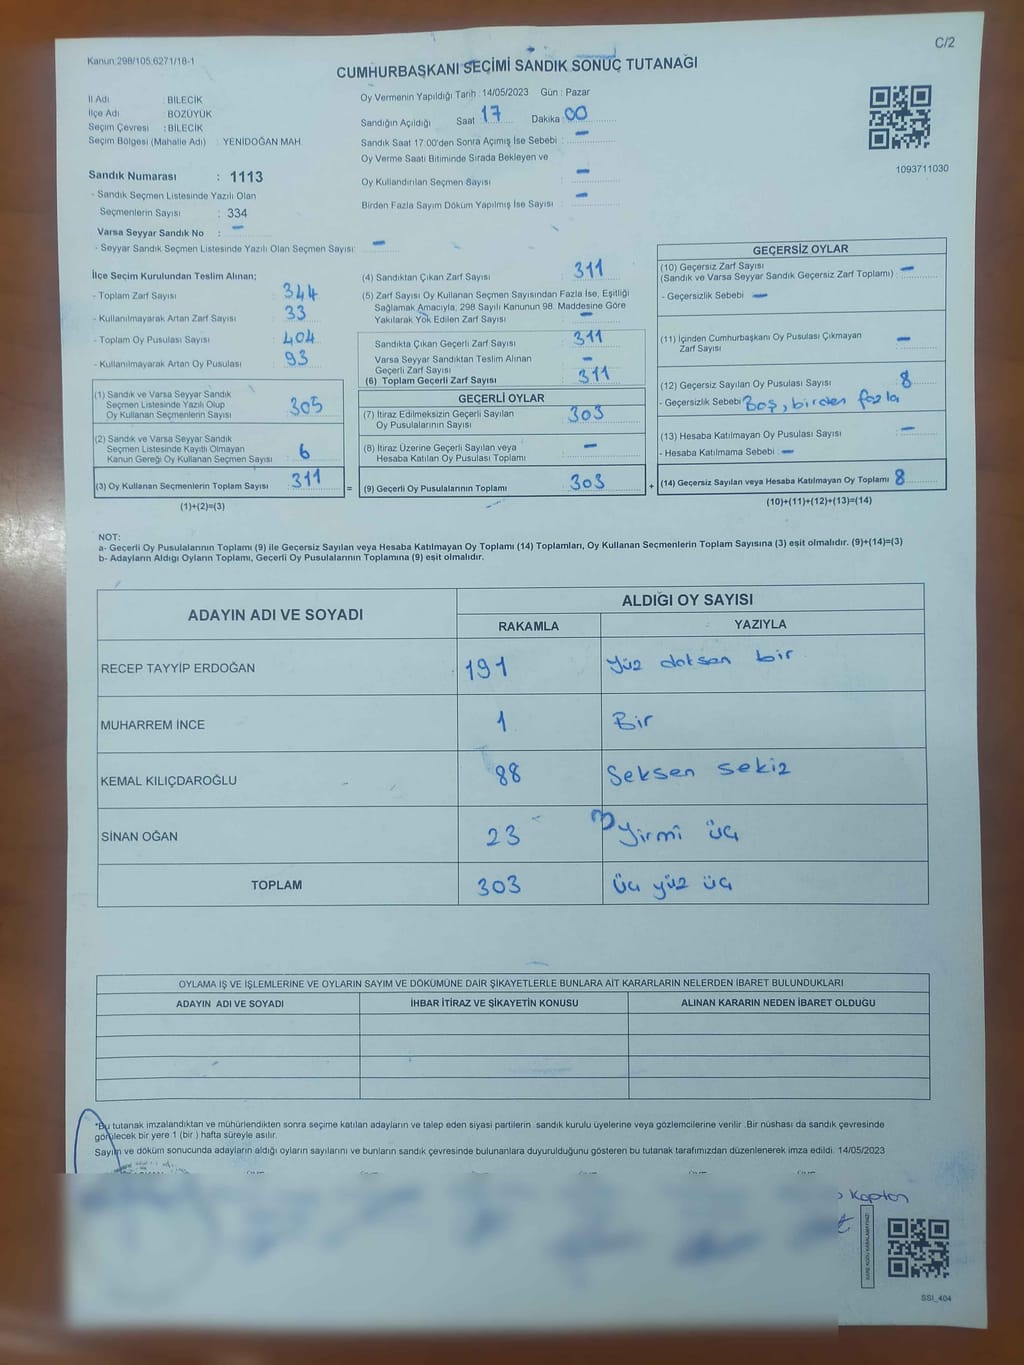 C/2
Kanun 298/105.6271/18-1
CUMHURBAŞKANI SEÇİMİ SANDIK SONUÇ TUTANAĞI
İl Adı : BİLECİK
İlçe Adı : BOZÜYÜK
Seçim Çevresi : BİLECİK
Seçim Bölgesi (Mahalle Adı) : YENİDOĞAN MAH.
Oy Vermenin Yapıldığı Tarih : 14/05/2023 Gün : Pazar
Sandığın Açıldığı Saat 17 Dakika 00
Sandık Saat 17:00'den Sonra Açımış İse Sebebi : -
Oy Verme Saati Bitiminde Sırada Bekleyen ve
Oy Kullandırılan Seçmen Sayısı : -
Birden Fazla Sayım Döküm Yapılmış İse Sayısı : -
1093711030
Sandık Numarası : 1113
- Sandık Seçmen Listesinde Yazılı Olan
Seçmenlerin Sayısı : 334
Varsa Seyyar Sandık No : -
- Seyyar Sandık Seçmen Listesinde Yazılı Olan Seçmen Sayısı: -
İlçe Seçim Kurulundan Teslim Alınan;
- Toplam Zarf Sayısı : 344
- Kullanılmayarak Artan Zarf Sayısı : 33
- Toplam Oy Pusulası Sayısı : 404
- Kullanılmayarak Artan Oy Pusulası : 93
(1) Sandık ve Varsa Seyyar Sandık
Seçmen Listesinde Yazılı Olup
Oy Kullanan Seçmenlerin Sayısı : 305
(2) Sandık ve Varsa Seyyar Sandık
Seçmen Listesinde Kayıtlı Olmayan
Kanun Gereği Oy Kullanan Seçmen Sayısı : 6
(3) Oy Kullanan Seçmenlerin Toplam Sayısı : 311 =
(1)+(2)=(3)
(4) Sandıktan Çıkan Zarf Sayısı : 311
(5) Zarf Sayısı Oy Kullanan Seçmen Sayısından Fazla İse, Eşitliği
Sağlamak Amacıyla, 298 Sayılı Kanunun 98. Maddesine Göre
Yakılarak Yok Edilen Zarf Sayısı : -
Sandıkta Çıkan Geçerli Zarf Sayısı : 311
Varsa Seyyar Sandıktan Teslim Alınan
Geçerli Zarf Sayısı : -
(6) Toplam Geçerli Zarf Sayısı : 311
GEÇERLİ OYLAR
(7) İtiraz Edilmeksizin Geçerli Sayılan
Oy Pusulalarının Sayısı : 303
(8) İtiraz Üzerine Geçerli Sayılan veya
Hesaba Katılan Oy Pusulası Toplamı : -
(9) Geçerli Oy Pusulalarının Toplamı : 303 +
GEÇERSİZ OYLAR
(10) Geçersiz Zarf Sayısı
(Sandık ve Varsa Seyyar Sandık Geçersiz Zarf Toplamı) : -
- Geçersizlik Sebebi : -
(11) İçinden Cumhurbaşkanı Oy Pusulası Çıkmayan
Zarf Sayısı : -
(12) Geçersiz Sayılan Oy Pusulası Sayısı : 8
- Geçersizlik Sebebi : Boş, birden fazla
(13) Hesaba Katılmayan Oy Pusulası Sayısı : -
- Hesaba Katılmama Sebebi : -
(14) Geçersiz Sayılan veya Hesaba Katılmayan Oy Toplamı : 8
(10)+(11)+(12)+(13)=(14)
NOT:
a- Geçerli Oy Pusulalarının Toplamı (9) ile Geçersiz Sayılan veya Hesaba Katılmayan Oy Toplamı (14) Toplamları, Oy Kullanan Seçmenlerin Toplam Sayısına (3) eşit olmalıdır. (9)+(14)=(3)
b- Adayların Aldığı Oyların Toplamı, Geçerli Oy Pusulalarının Toplamına (9) eşit olmalıdır.
ADAYIN ADI VE SOYADI ALDIĞI OY SAYISI
RAKAMLA YAZIYLA
RECEP TAYYİP ERDOĞAN 191 Yüz doksan bir
MUHARREM İNCE 1 Bir
KEMAL KILIÇDAROĞLU 88 Seksen sekiz
SİNAN OĞAN 23 Yirmi üç
TOPLAM 303 Üç yüz üç
OYLAMA İŞ VE İŞLEMLERİNE VE OYLARIN SAYIM VE DÖKÜMÜNE DAİR ŞİKAYETLERLE BUNLARA AİT KARARLARIN NELERDEN İBARET BULUNDUKLARI
ADAYIN ADI VE SOYADI İHBAR İTİRAZ VE ŞİKAYETİN KONUSU ALINAN KARARIN NEDEN İBARET OLDUĞU
*Bu tutanak imzalandıktan ve mühürlendikten sonra seçime katılan adayların ve talep eden siyasi partilerin sandık kurulu üyelerine veya gözlemcilerine verilir .Bir nüshası da sandık çevresinde
görülecek bir yere 1 (bir ) hafta süreyle asılır.
Sayım ve döküm sonucunda adayların aldığı oyların sayılarını ve bunların sandık çevresinde bulunanlara duyurulduğunu gösteren bu tutanak tarafımızdan düzenlenerek imza edildi. 14/05/2023
Kaplan
KARE KODU KARALAMAYINIZ!
SSI_404